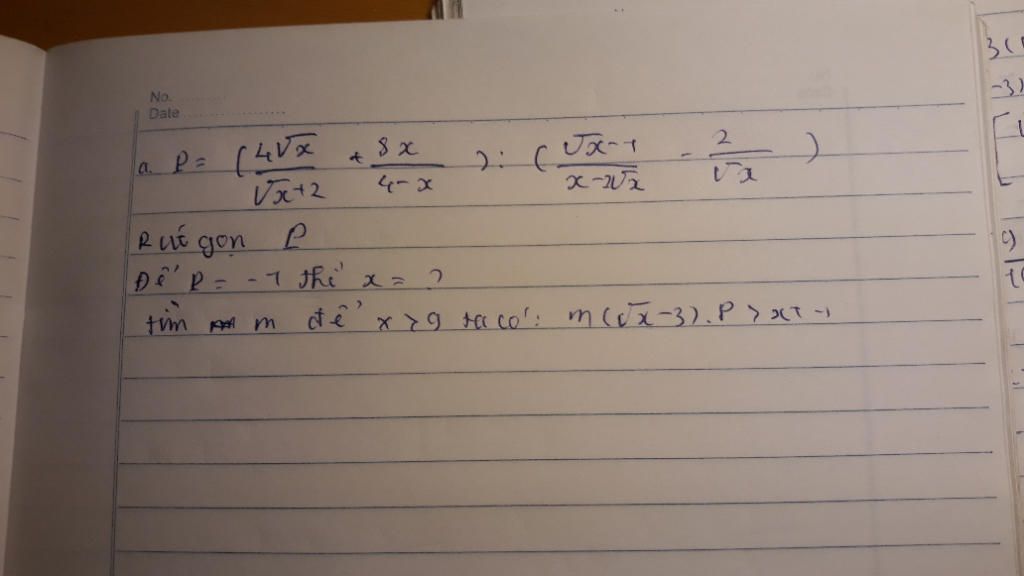 No.
Date
a. P = (4√x/√x+2 + 8x/4-x) : (√x-1/x-2√x - 2/√x)
Rút gọn P
Để P = -1 thì x = ?
tìm m để x > 9 ta có: m(√x-3).P > x+1